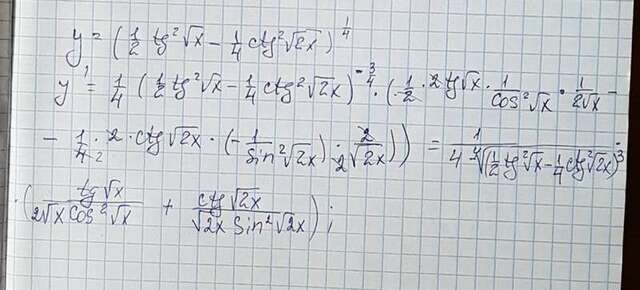 y = (1/2 tg²√x − 1/4 ctg²√2x)^1/4
y' = 1/4 (1/2 tg²√x − 1/4 ctg²√2x)^-3/4 · (1/2 · 2 tg√x · 1/cos²√x · 1/2√x −
− 1/4 2 · 2 · ctg√2x · (−1/sin²√2x) · 2/2√2x)) = 1/4 ⁴√(1/2 tg²√x − 1/4 ctg²√2x)³ ·
· (tg√x/2√x cos²√x + ctg√2x/√2x sin²√2x) ;